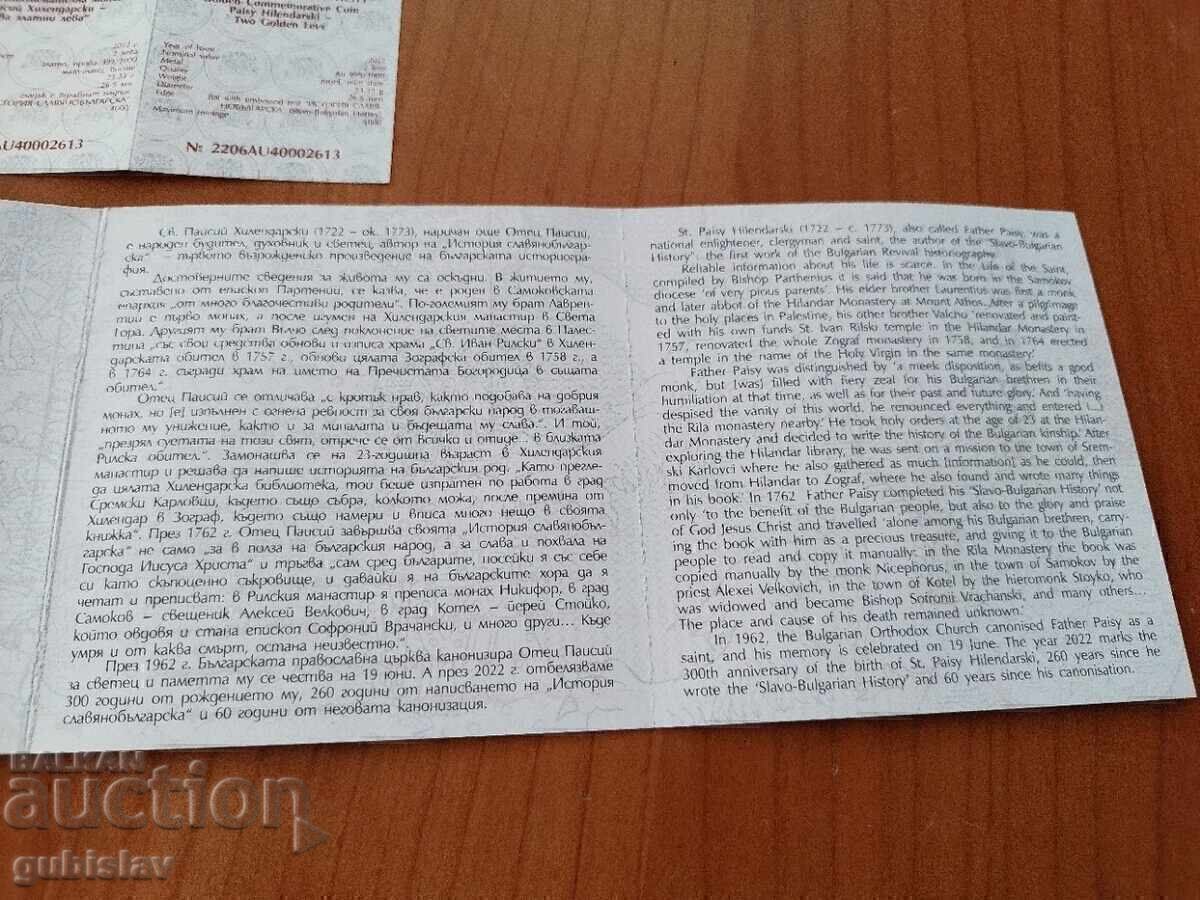 исий Хилендарски –
ва златни лева"
2022 г.
2 лева
злато, проба 999/1000
23.33 г
СТОРИЯ-СЛАВЯНОБЪЛГАРСКА"
4000
AU40002613
Golden Commemorative Coin
Paisy Hilendarski –
Two Golden Levs
Year of Issue
Nominal value
Metal
Quality
Weight
Diameter
Edge
Maximum mintage
2022
2 leva
Au 999/1000
26.5 mm
4000
№ 2206AU40002613
Св. Паисий Хилендарски (1722 – ок. 1773), наричан още Отец Паисий,
е народен будител, духовник и светец, автор на „История славянобългар-
ска“ – първото възрожденско произведение на българската историогра-
фия.
Достоверните сведения за живота му са оскъдни. В житието му,
съставено от епископ Партений, се казва, че е роден в Самоковската
епархия „от много благочестиви родители“. По-големият му брат Лаврен-
тий е първо монах, а после игумен на Хилендарския манастир в Света
Гора. Другият му брат Вълчо след поклонение на светите места в Палес-
тина „със свои средства обнови и изписа храма „Св. Иван Рилски“ в Хилен-
дарската обител в 1757 г., обнови цялата Зографска обител в 1758 г., а
в 1764 г. съгради храм на името на Пречистата Богородица в същата
обител.“
Отец Паисий се отличава „с кротък нрав, както подобава на добрия
монах, но [е] изпълнен с огнена ревност за своя български народ в тогаваш-
ното му унижение, както и за миналата и бъдещата му слава.“. И той,
„презрял суетата на този свят, отрече се от всичко и отиде... в близката
Рилска обител“. Замонашва се на 23-годишна възраст в Хилендарския
манастир и решава да напише историята на българския род. „Като прегле-
да цялата Хилендарска библиотека, той беше изпратен по работа в град
Сремски Карловци, където също събра, колкото можа, после премина от
Хилендар в Зограф, където също намери и вписа много нещо в своята
книжка“. През 1762 г. Отец Паисий завършва своята „История славянобъл-
гарска“ не само „за в полза на българския народ, а за слава и похвала на
Господа Иисуса Христа“ и тръгва „сам сред българите, носейки я със себе
си като скъпоценно съкровище, и давайки я на българските хора да я
четат и преписват: в Рилския манастир я преписа монах Никифор, в град
Самоков – свещеник Алексей Велкович, в град Котел – йерей Стойко,
който овдовя и стана епископ Софроний Врачански, и много други... Къде
умря и от каква смърт, остана неизвестно.“
През 1962 г. Българската православна църква канонизира Отец Паисий
за светец и паметта му се чества на 19 юни. А през 2022 г. отбелязваме
300 години от рождението му, 260 години от написването на „История
славянобългарска“ и 60 години от неговата канонизация.
St. Paisy Hilendarski (1722 – c. 1773), also called Father Paisy, was a
national enlightener, clergyman and saint, the author of the 'Slavo-Bulgarian
History': the first work of the Bulgarian Revival historiography.
Reliable information about his life is scarce. In the Life of the Saint,
compiled by Bishop Parthenius, it is said that he was born in the Samokov
diocese 'of very pious parents'. His elder brother Laurentius was first a monk,
and later abbot of the Hilandar Monastery at Mount Athos. After a pilgrimage
to the holy places in Palestine, his other brother Valcho 'renovated and paint-
ed with his own funds St. Ivan Rilski temple in the Hilandar Monastery in
1757, renovated the whole Zograf monastery in 1758, and in 1764 erected
a temple in the name of the Holy Virgin in the same monastery.'
Father Paisy was distinguished by 'a meek disposition, as befits a good
monk, but [was] filled with fiery zeal for his Bulgarian brethren in their
humiliation at that time, as well as for their past and future glory. And 'having
despised the vanity of this world, he renounced everything and entered (...)
the Rila monastery nearby.' He took holy orders at the age of 23 at the Hilan-
dar Monastery and decided to write the history of the Bulgarian kinship.' After
exploring the Hilandar library, he was sent on a mission to the town of Srem-
ski Karlovci where he also gathered as much [information] as he could, then
moved from Hilandar to Zograf, where he also found and wrote many things
in his book.' In 1762 Father Paisy completed his 'Slavo-Bulgarian History' not
only 'to the benefit of the Bulgarian people, but also to the glory and praise
of God Jesus Christ and travelled 'alone among his Bulgarian brethren, carry-
ing the book with him as a precious treasure, and giving it to the Bulgarian
people to read and copy it manually: in the Rila Monastery the book was
copied manually by the monk Nicephorus, in the town of Samokov by the
priest Alexei Velkovich, in the town of Kotel by the hieromonk Stoyko, who
was widowed and became Bishop Sofronii Vrachanski, and many others...
The place and cause of his death remained unknown.'
In 1962, the Bulgarian Orthodox Church canonised Father Paisy as a
saint, and his memory is celebrated on 19 June. The year 2022 marks the
300th anniversary of the birth of St. Paisy Hilendarski, 260 years since he
wrote the 'Slavo-Bulgarian History' and 60 years since his canonisation.
BALKAN
auction
gubislav